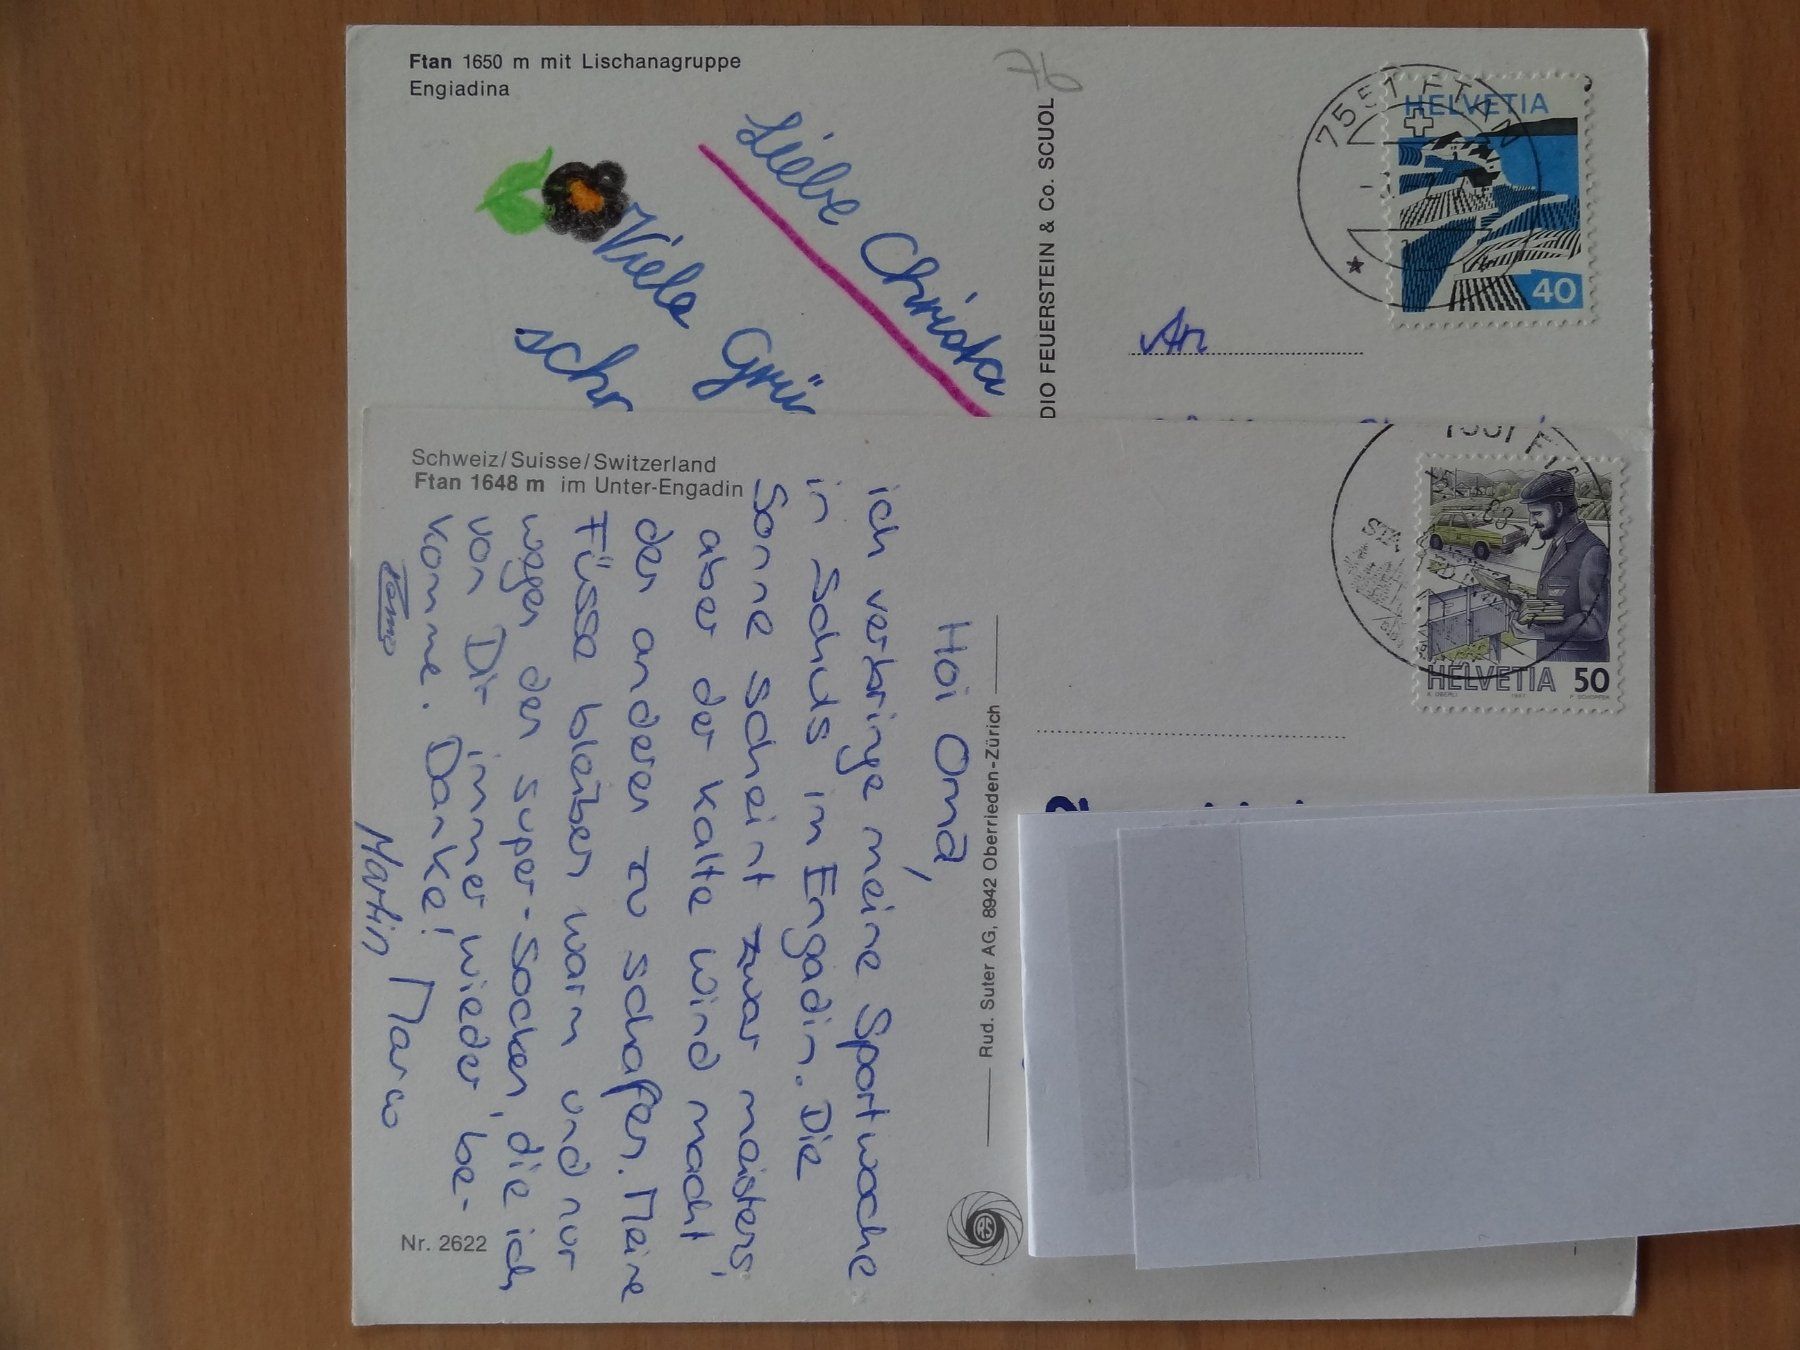 Ftan 1650 m mit Lischanagruppe
Engiadina
76
Liebe Christa
Viele Grü
schr
DIO FEUERSTEIN & Co. SCUOL
7551 FTAN
HELVETIA
40
An
Schweiz/Suisse/Switzerland
Ftan 1648 m im Unter-Engadin
Hoi Oma,
ich verbringe meine Sportwoche
in Schuls im Engadin. Die
Sonne scheint zwar meistens,
aber der kalte Wind macht
den anderen zu schaffen. Meine
Füsse bleiben warm und nur
wegen den super-Socken, die ich
von Dir immer wieder be-
komme. Danke!
Martin Marco
Rud. Suter AG, 8942 Oberrieden-Zürich
RS
Nr. 2622
HELVETIA 50